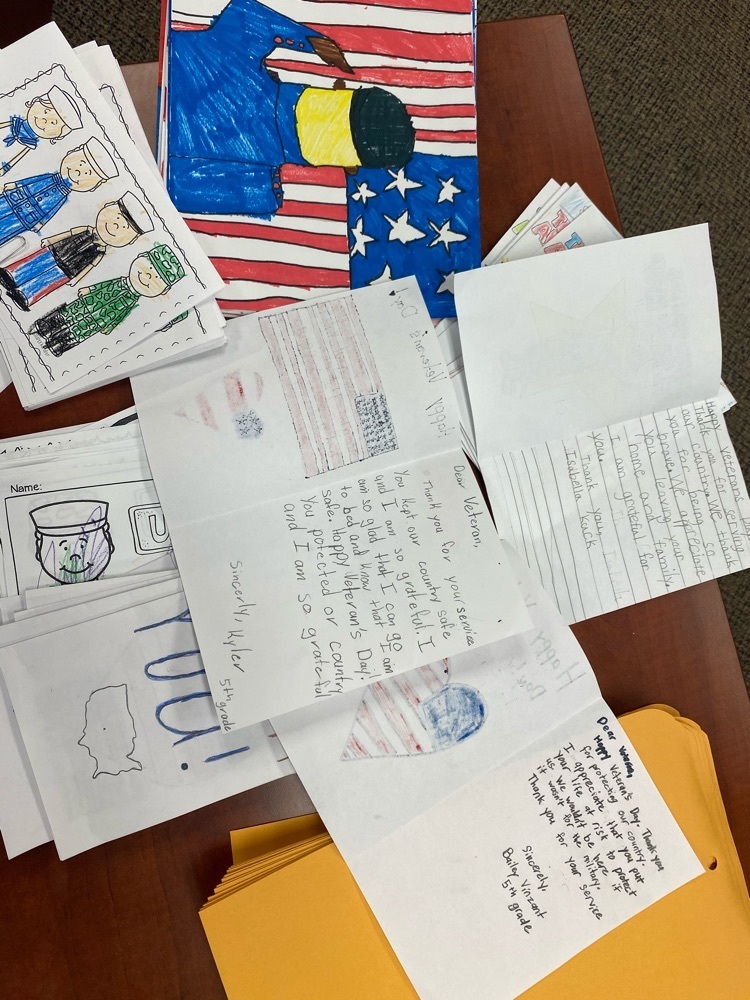 Happy Veterans
Thank you for serving
our country. We thank
you for being so
brave. We appreciate
you leaving your
home and family.
I am grateful for
you.
Thank you,
Isabella
Happy Veteran's Day!
Dear Veteran,
Thank you for your service
You kept our country safe
and I am so grateful. I
am so glad that I can go
to bed and know that I am
safe. Happy Veteran's Day!
You potected or country
and I am so grateful
Sincerly, Kyler
5th grade
Name:
YOU!
Happy
Dear Veteran,
Happy Veteran's Day. Thank you
for protecting our country.
I appreciate that you put
your life at risk to protect
us. We wouldn't be here if
it wasn't for the military.
Thank you for your service
Sincerely,
Bailey Vinzant
5th grade